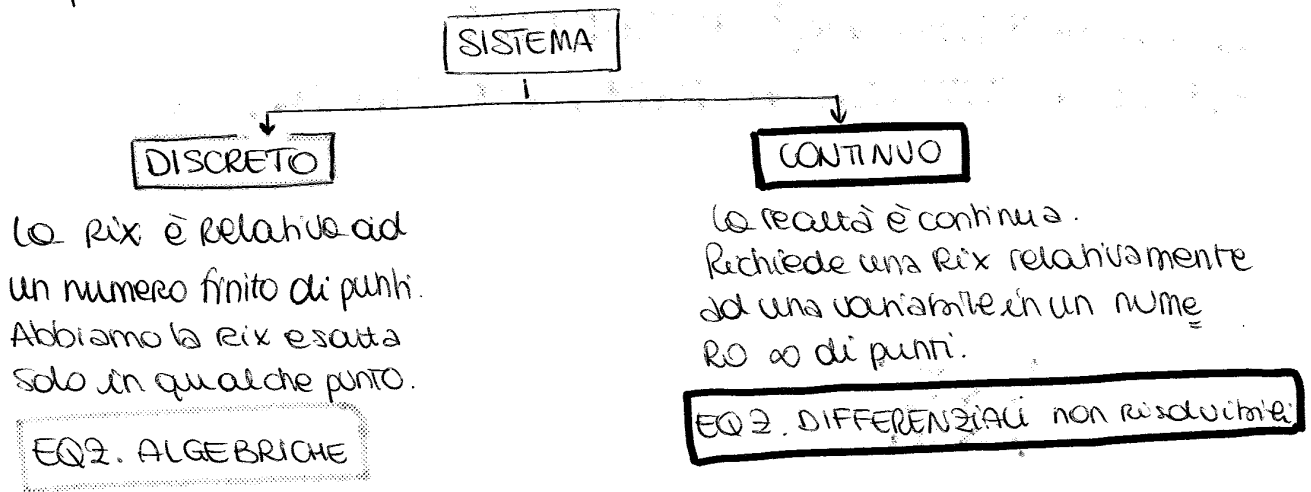 SISTEMA
DISCRETO
La Rix è Relativa ad
un numero finito di punti.
Abbiamo la Rix esatta
solo in qualche punto.
EQZ. ALGEBRICHE
CONTINUO
La realtà è continua.
Richiede una Rix relativamente
ad una variabile in un nume
RO ∞ di punti.
EQZ. DIFFERENZIALI non risolvibili